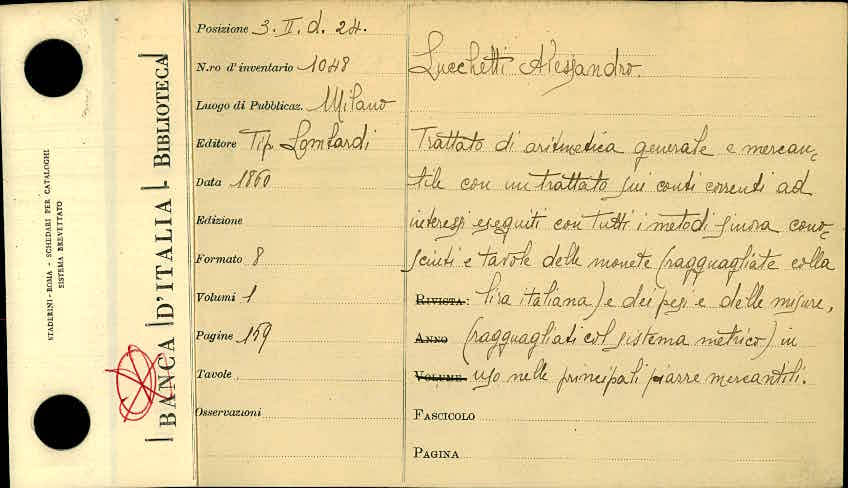 STADERINI - ROMA - SCHEDARI PER CATALOGHI
SISTEMA BREVETTATO
BANCA D'ITALIA - BIBLIOTECA
Posizione 3. II. d. 24.
N.ro d'inventario 1048
Luogo di Pubblicaz. Milano
Editore Tip. Lombardi
Data 1860
Edizione
Formato 8
Volumi 1
Pagine 159
Tavole
Osservazioni
Lucchetti Alessandro.
Trattato di aritmetica generale e mercan-
tile con un trattato sui conti correnti ad
interessi eseguiti con tutti i metodi finora cono-
sciuti e tavole delle monete (ragguagliate colla
RIVISTA: lira italiana) e dei pesi e delle misure,
ANNO (ragguagliati col sistema metrico) in
VOLUME uso nelle principali piazze mercantili.
FASCICOLO
PAGINA